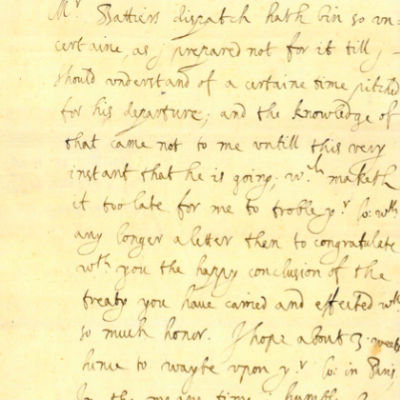 Mr Battiers dispatch hath bin so un=
certaine, as j prepared not for it till j
should understand of a certaine time pitched
for his departure; and the knowledge of
that came not to me untill this very
instant that he is going; wch maketh
it too late for me to troble yr lo: wth
any longer a letter then to congratulate
wth you the happy conclusion of the
treaty you have caried and effected wth
so much honor. I hope about 3 weeks
hence to wayte upon yr lo: in Paris,
In the meane time j humbly